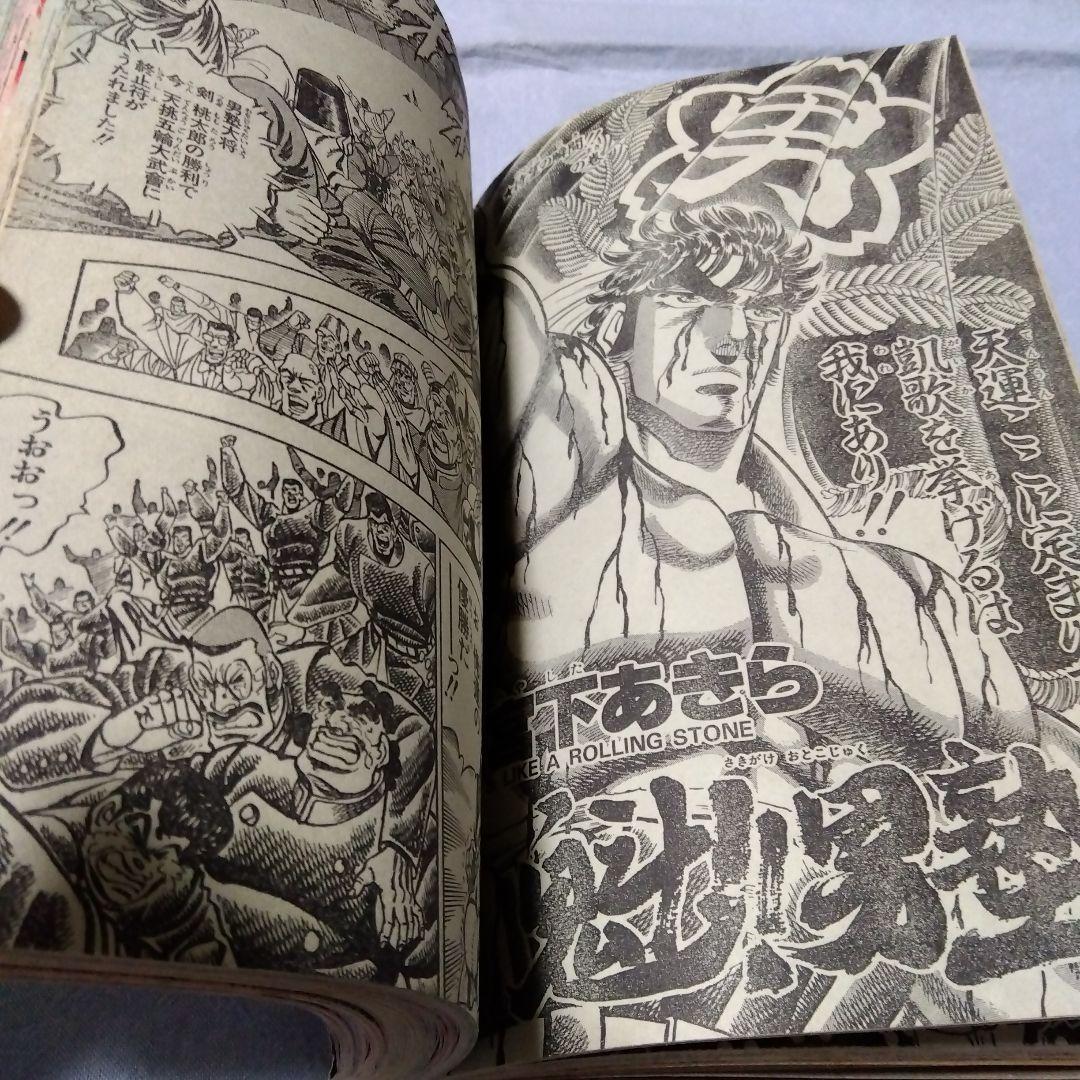 男
天運ここに定まり
凱歌を挙げるは
我にあり!!
下あきら
LIKE A ROLLING STONE
さきがけ おとこじゅく
魁!!男塾
男塾大将
剣 桃太郎の勝利で
今 天挑五輪大武會に
終止符が
うたれました!!
うおおっ!!